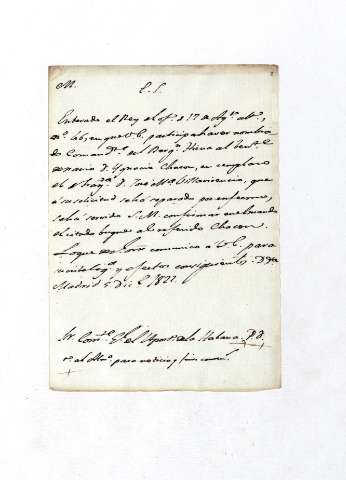 M.
E. S.
Enterado el Rey el of.º 17 de Ag.to ult.º,
n.º 46, en que V.E. participa haver nombra
do Comand.te del Berg.n Hiena al Ten.te
de navio D. Ygnacio Chacon, en remplazo
el de frag.ta D. Jose M.a Villavicencia, que
á su solicitud se há separado por enfermo,
se há servido S.M. confirmar en el mando
del citado buque al referido Chacon.
Lo que de R.l orn. comunico á V.E. para
su intelig.a y efectos consiguientes. D. g.
Madrid 5 Dic.e 1821.
Sr. Com.te G.l del Apost.º de la Habana.
al para noticia y fines